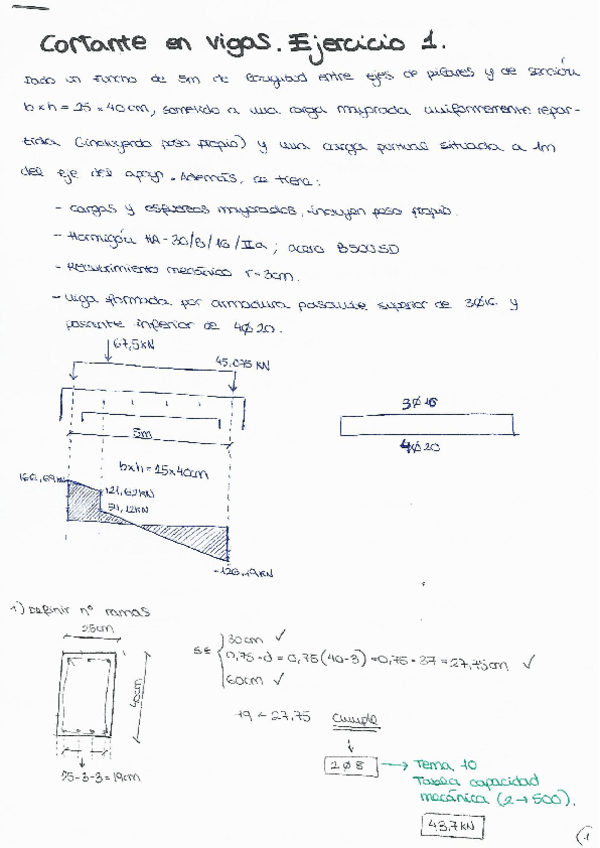 Cortante en vigas. Ejercicio 1.
Dado un forjado de 5m de longitud entre ejes de pilares y de sección
b×h = 25×40cm, sometido a una carga mayorada uniformemente repar-
tida (incluyendo peso propio) y una carga puntual situada a 1m
del eje del apoyo. Además, se tiene:
- cargas y esfuerzos mayorados, incluyen peso propio.
- Hormigón HA-30/B/16/IIa; acero B500SD
- Recubrimiento mecánico r=3cm.
- Viga formada por armadura pasante superior de 3ϕ16 y
pasante inferior de 4ϕ20.
67,5kN
45,075 kN
3ϕ16
4ϕ20
5m
b×h=25×40cm
121,62kN
54,12kN
-126,19kN
1) Definir nº ramas
25cm
40cm
25-3-3=19cm
st
30cm ✓
0,75·d = 0,75(40-3)=0,75·37=27,75cm ✓
60cm ✓
19 < 27,75 Cumple
2ϕ8 → Tema 10
Tabla capacidad
mecánica (2→500).
43,7kN
1